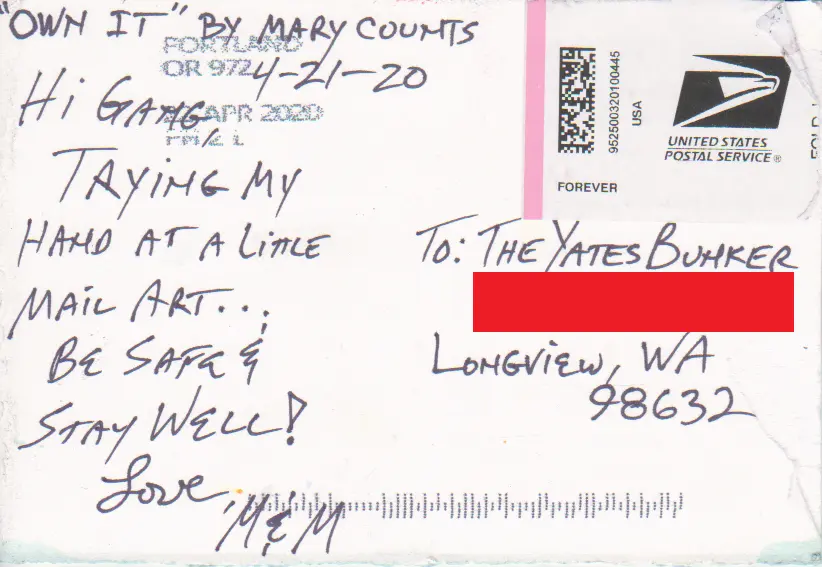 "OWN IT" BY MARY COUNTS
4-21-20
PORTLAND
OR 972
APR 2020
PM 2 L
HI GANG,
TRYING MY
HAND AT A LITTLE
MAIL ART...
BE SAFE &
STAY WELL!
Love,
M&M
9525003201000445
USA
FOREVER
UNITED STATES
POSTAL SERVICE®
TO: THE YATES BUNKER
LONGVIEW, WA
98632